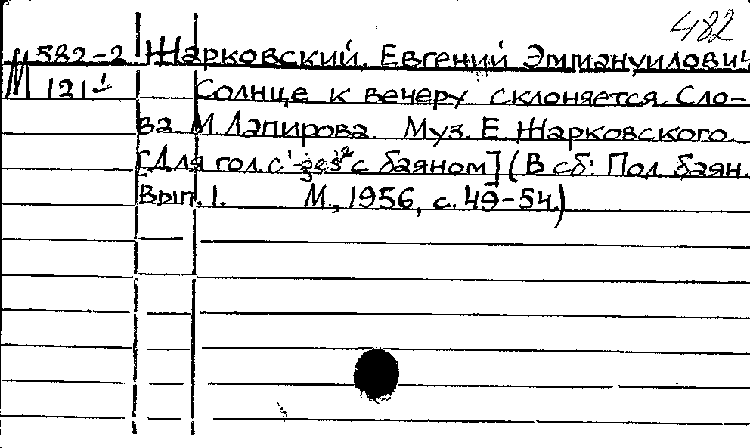 482
М 582-2 Жарковский, Евгений Эммануилович
121 Солнце к вечеру склоняется. Сло-
ва М. Лапирова. Муз. Е. Жарковского
[Для гол. с¹- ges² с баяном] (В сб: Пол. баян.
Вып. 1. М., 1956, с. 49-54.)